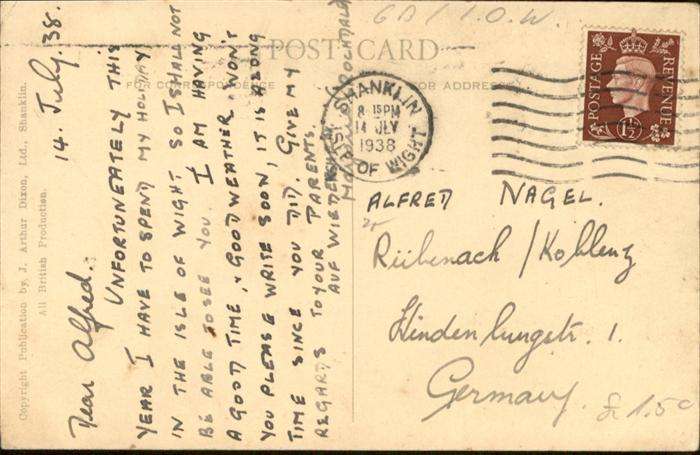 G B / I.O.W.
POST CARD
FOR CORRESPONDENCE
FOR ADDRESS
14. July. 38.
Dear Alfred.
UNFORTUNEATELY THIS
YEAR I HAVE TO SPEND MY HOLIDAY
IN THE ISLE OF WIGHT SO I SHALL NOT
BE ABLE TO SEE YOU. I AM HAVING
A GOOD TIME, & GOOD WEATHER. WON'T
YOU PLEASE WRITE SOON, IT IS A LONG
TIME SINCE YOU DID. GIVE MY
REGARDS TO YOUR PARENTS.
AUF WIEDERSEHEN
ROCHDALE
SHANKLIN
8 15 PM
14 JLY
1938
ISLE OF WIGHT
POSTAGE
REVENUE
1½D
ALFRED NAGEL.
Rübenach / Koblenz
Hindenburgstr. 1.
Germany.
£ 1.50
Copyright Publication by J. Arthur Dixon, Ltd., Shanklin.
All British Production.